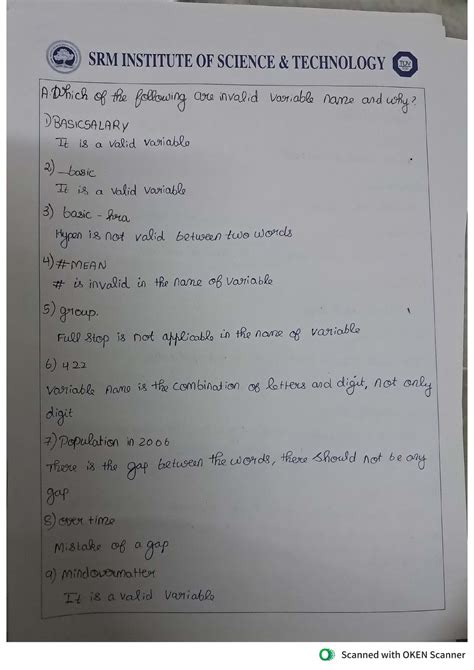 SRM INSTITUTE OF SCIENCE & TECHNOLOGY
A. Which of the following are invalid variable name and why?
1) BASICSALARY
It is a valid variable
2) _basic
It is a valid variable
3) basic - hra
Hypen is not valid between two words
4) #MEAN
# is invalid in the name of variable
5) group.
Full stop is not applicable in the name of variable
6) 422
variable name is the combination of letters and digit, not only
digit
7) Population in 2006
There is the gap between the words, there should not be any
gap
8) over time
Mistake of a gap
9) mindovermatter
It is a valid variable
Scanned with OKEN Scanner